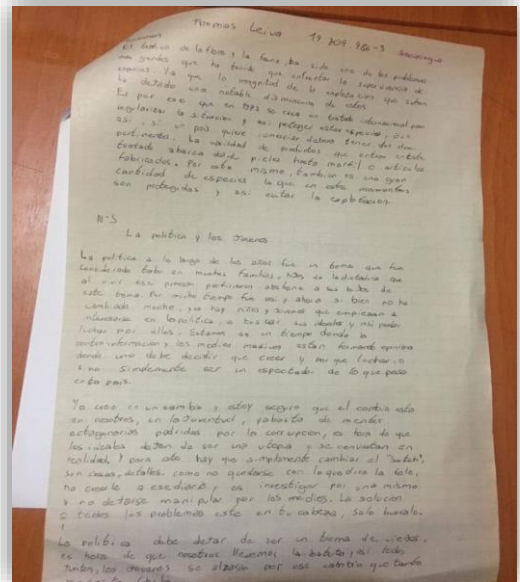 Thomas Leiva 19 209 986-3 Sociología
El tráfico de la flora y la fauna, ha sido uno de los problemas
más grandes que ha tenido que enfrentar la supervivencia de
especies. Ya que la magnitud de la explotación que sufren
ha dejado una notable disminución de estos
Es por eso que en 1973 se crea un tratado internacional para
regularizar la situación y así proteger estas especies,
así, si un país quiere comerciar deberá tener
pertinente. La cantidad de productos que entran en este
tratado abarca desde pieles hasta marfil o artículos
fabricados. Por esto mismo, también es una gran
cantidad de especies la que en este momentos
son protegidas y así evitar la explotación.
N-3
La política y los Jóvenes
La política a lo largo de los años fue un tema que fue
considerado tabú en muchas familias, hijos de la dictadura que
al vivir ese proceso prefirieron abstene a sus hijos de
este tema. Por mucho tiempo fue así y ahora si bien no ha
cambiado mucho, ya hay niños y jóvenes que empiezan a
interesarse en la política, a conocer sus derechos y así poder
luchar por ellos. Estamos en un tiempo donde la
contra información y los medios masivos estan formando opinión
donde uno debe decidir que creer y por que luchar, o
si no simplemente ser un espectador de lo que pasa
en tu país.
Yo creo en un cambio y estoy seguro que el cambio esta
en nosotros, en la juventud,
podridas por la corrupción, es hora de que
los ideales dejen de ser una utopía y se conviertan en
realidad y para esto hay que simplemente cambiar el "switch".
Son cosas, detalles. como no quedarse con lo que dice la tele,
no creerle a ese diario, es investigar por uno mismo
y no dejarse manipular por los medios. La solución
a todos los problemas esta en tu cabeza, solo buscalo.
La política debe dejar de ser un tema de viejos,
es hora de que nosotros llevemos la batuta, así todos
Juntos, los jóvenes se alzarán por ese cambio que tanto